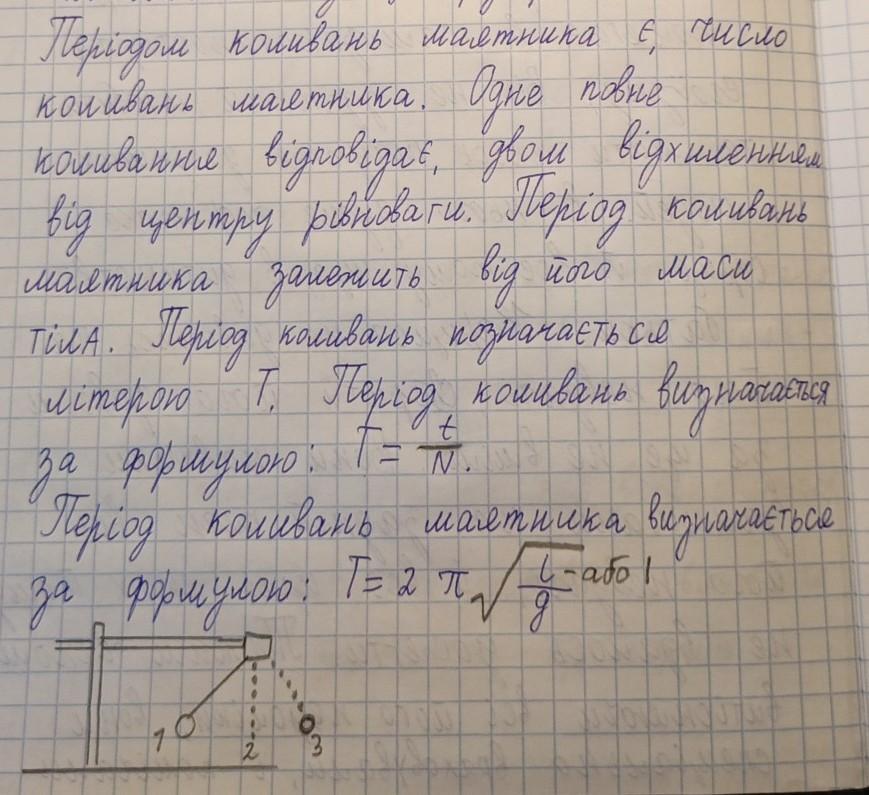 Періодом коливань маятника є, число
коливань маятника. Одне повне
коливання відповідає, двом відхиленням
від центру рівноваги. Період коливань
маятника залежить від його маси
тіла. Період коливань позначається
літерою T. Період коливань визначається
за формулою: T = t/N.
Період коливань маятника визначається
за формулою: T = 2 π √(l/g) - або l
1 2 3